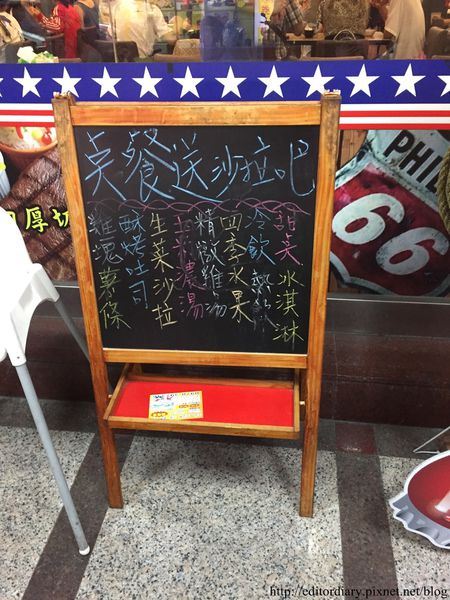 点餐送沙拉吧
甜美 冰淇淋
冷飲 熱飲
四季水果
精緻雞湯
玉米濃湯
生菜沙拉
酥烤吐司
雞塊薯條
厚切
PHIL
66
http://editordiary.pixnet.net/blog